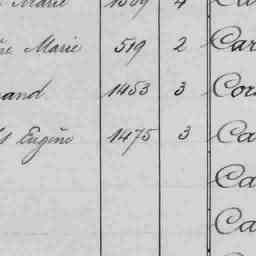 Marie 1309 4
Marie 519 2 Car
and 1453 3 Cor
Eugène 1475 3 Ca
Ca
Ca